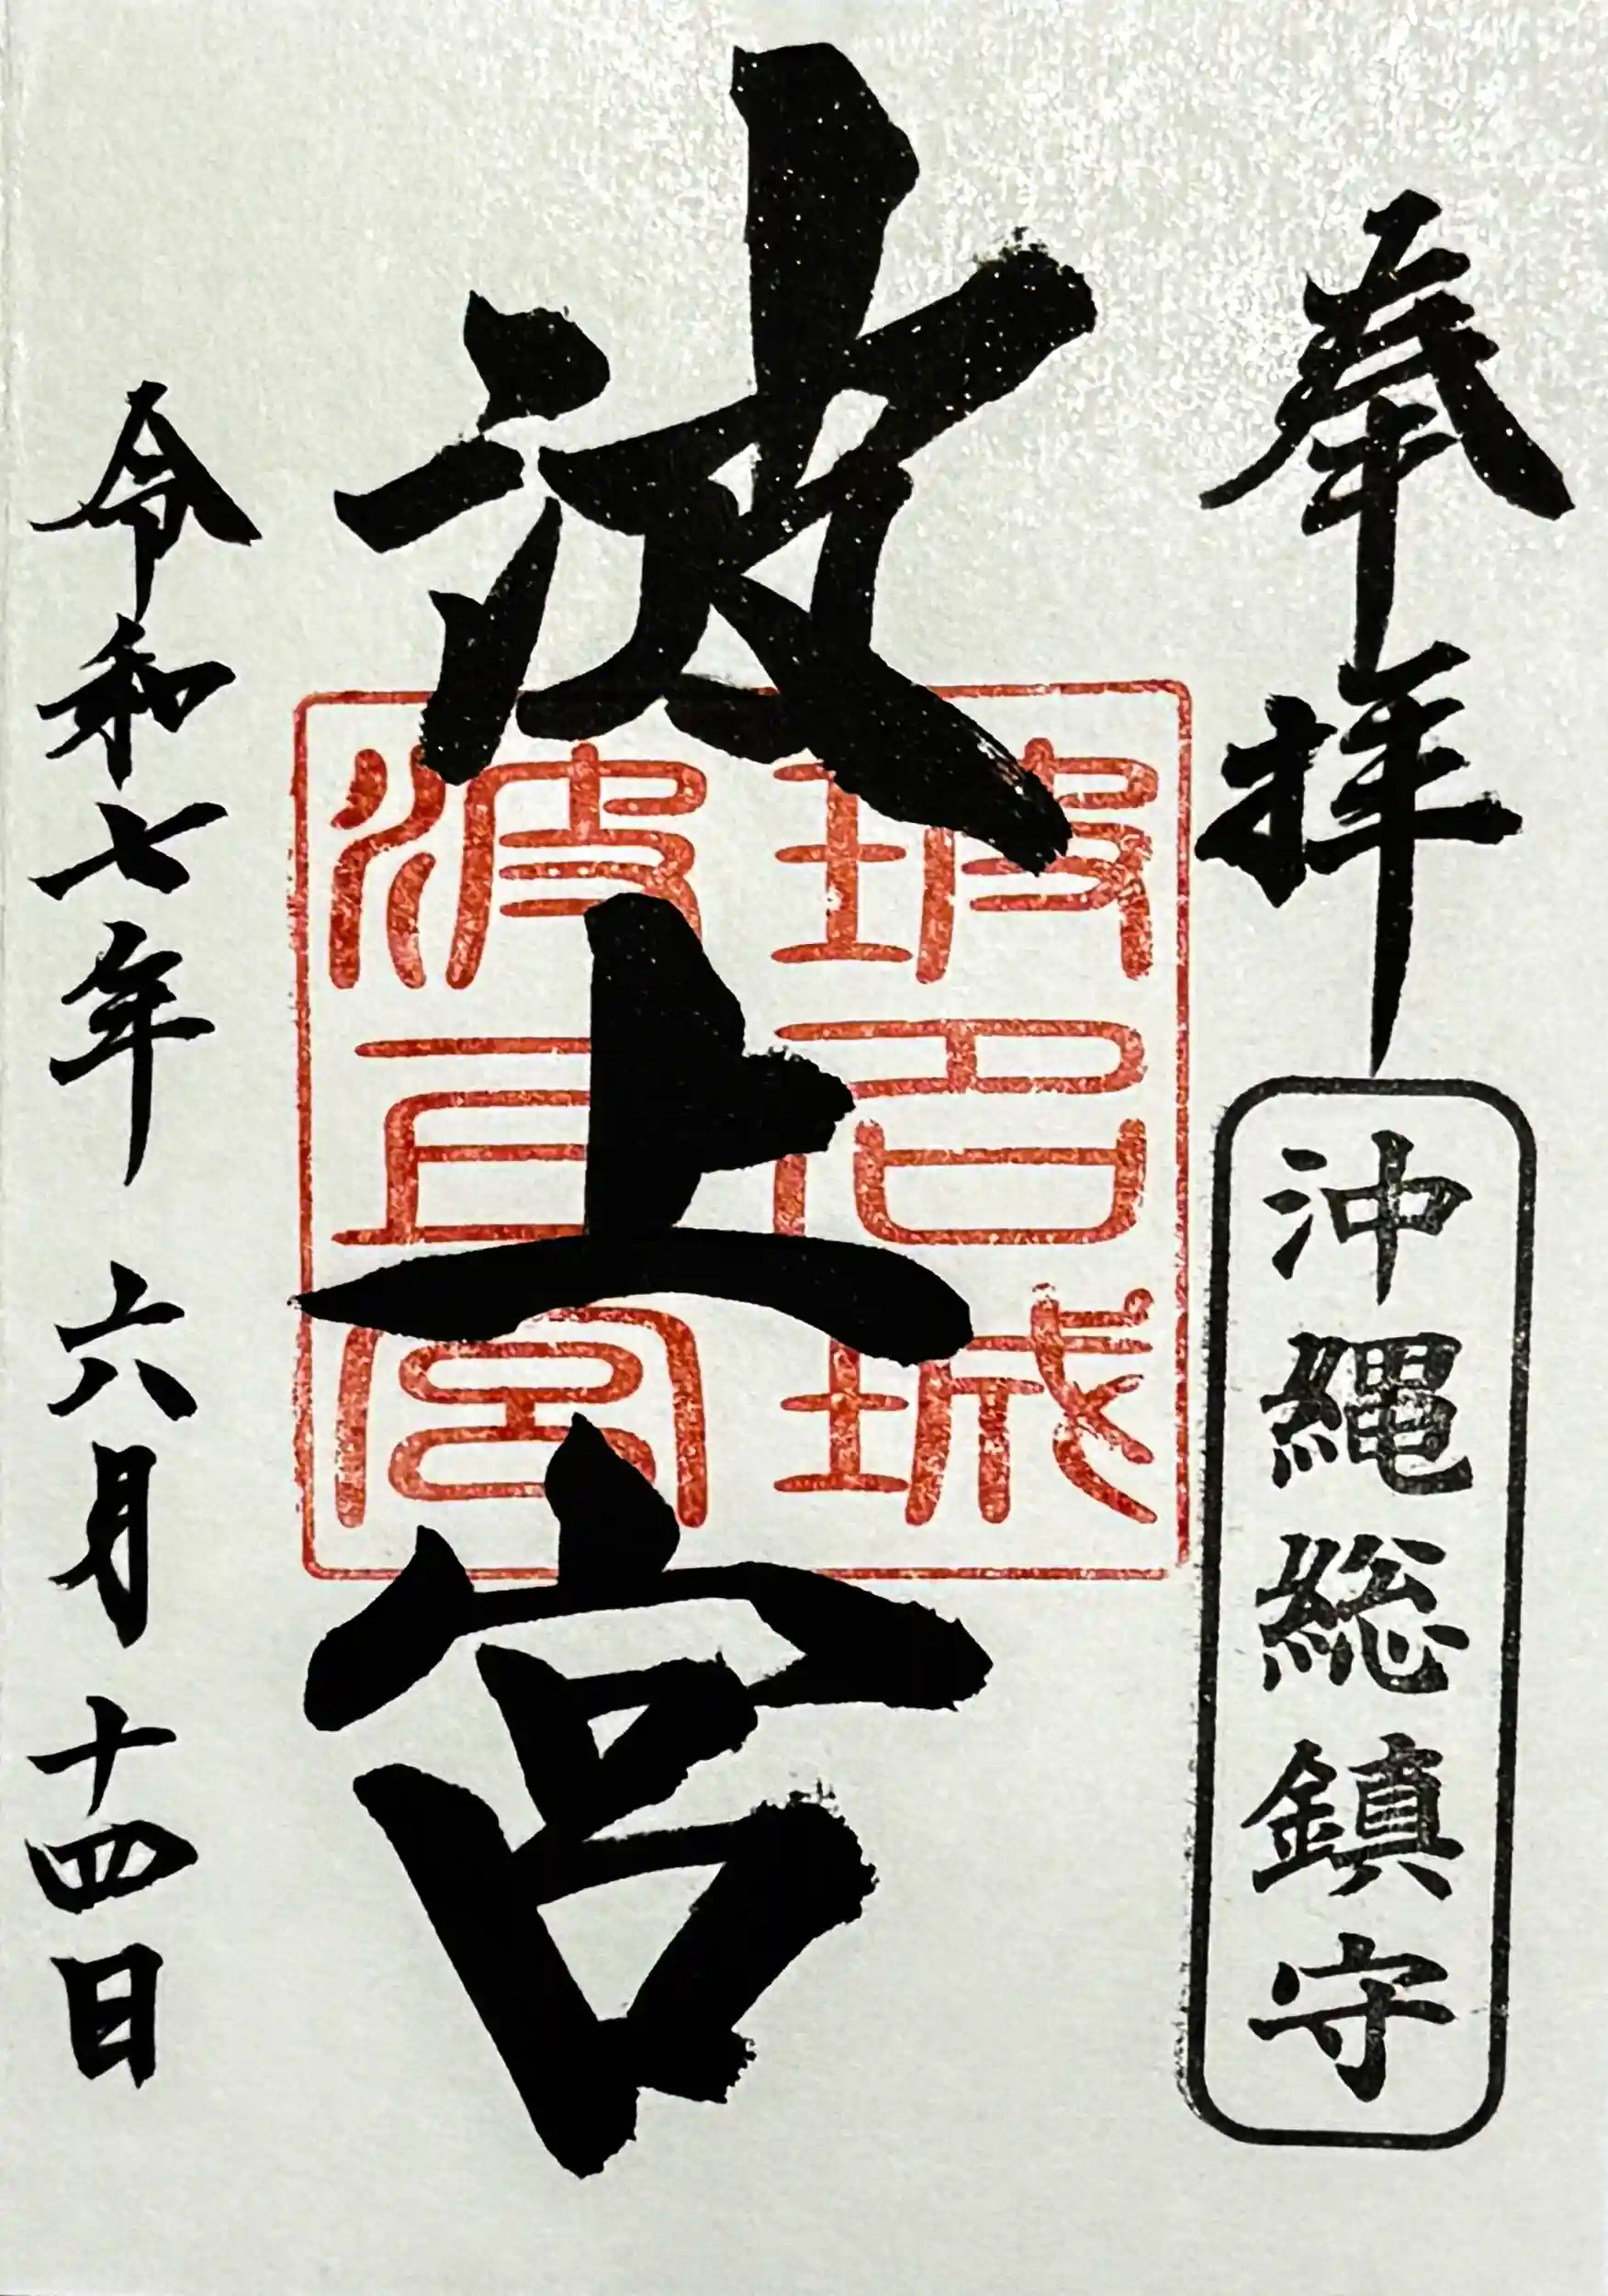 奉拝
沖縄総鎮守
波上宮
坡名城
波上宮
令和七年 六月 十四日